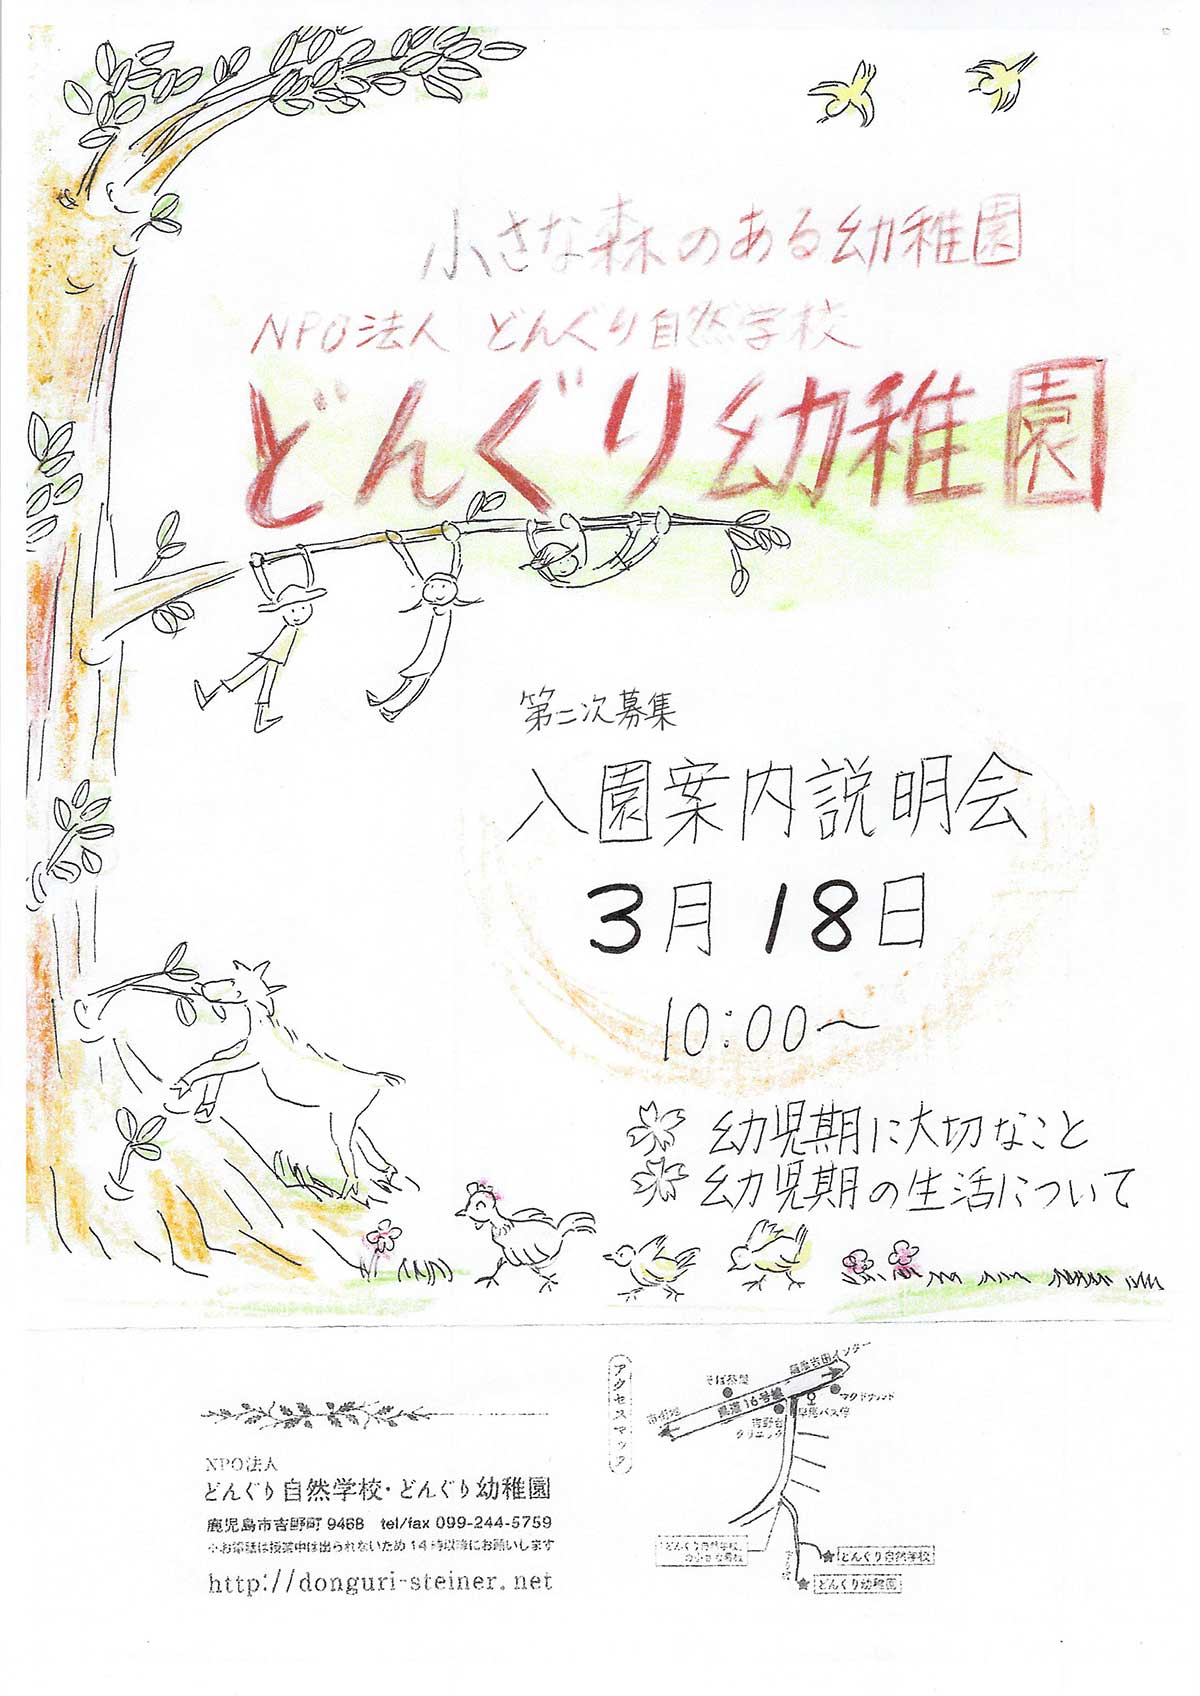 小さな森のある幼稚園
NPO法人 どんぐり自然学校
どんぐり幼稚園
第二次募集
入園案内説明会
3月18日
10:00〜
幼児期に大切なこと
幼児期の生活について
NPO法人
どんぐり自然学校・どんぐり幼稚園
鹿児島市吉野町9468 tel/fax 099-244-5759
※お電話は授業中は出られないため14時以降にお願いします
http://donguri-steiner.net
アクセスマップ
薩摩吉田インター
そば茶屋
マクドナルド
県道16号線
市街地
吉野台
クリニック
バス停
どんぐり自然学校
どんぐり幼稚園